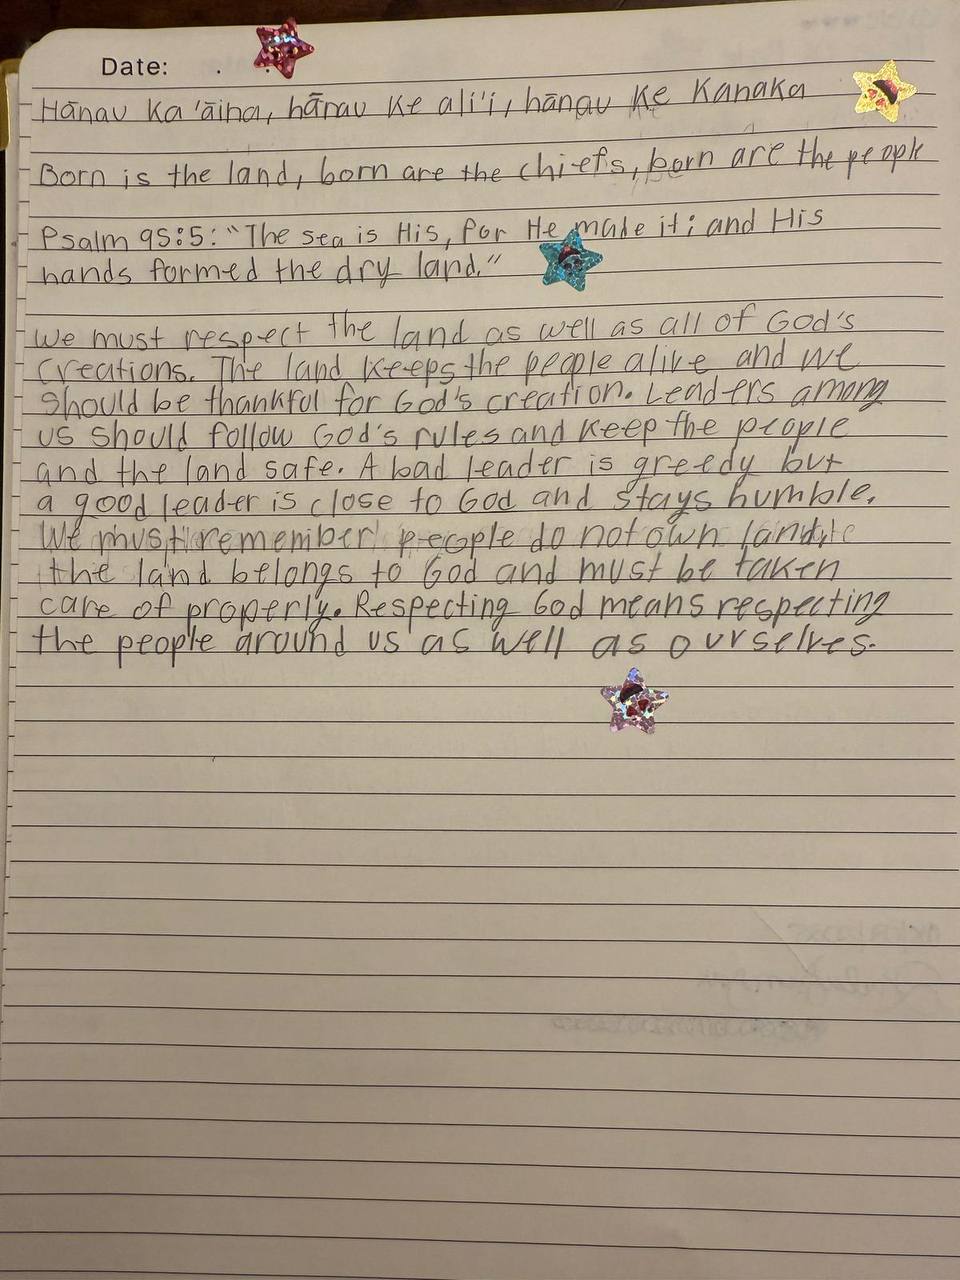 Date:
Hānau Ka 'āina, hānau Ke ali'i, hānau Ke Kanaka
Born is the land, born are the chiefs, born are the people
Psalm 95:5: "The sea is His, for He made it; and His
hands formed the dry land."
We must respect the land as well as all of God's
Creations. The land keeps the people alive and we
should be thankful for God's creation. Leaders among
us should follow God's rules and keep the people
and the land safe. A bad leader is greedy but
a good leader is close to God and stays humble.
We must remember people do not own land
the land belongs to God and must be taken
care of properly. Respecting God means respecting
the people around us as well as ourselves.